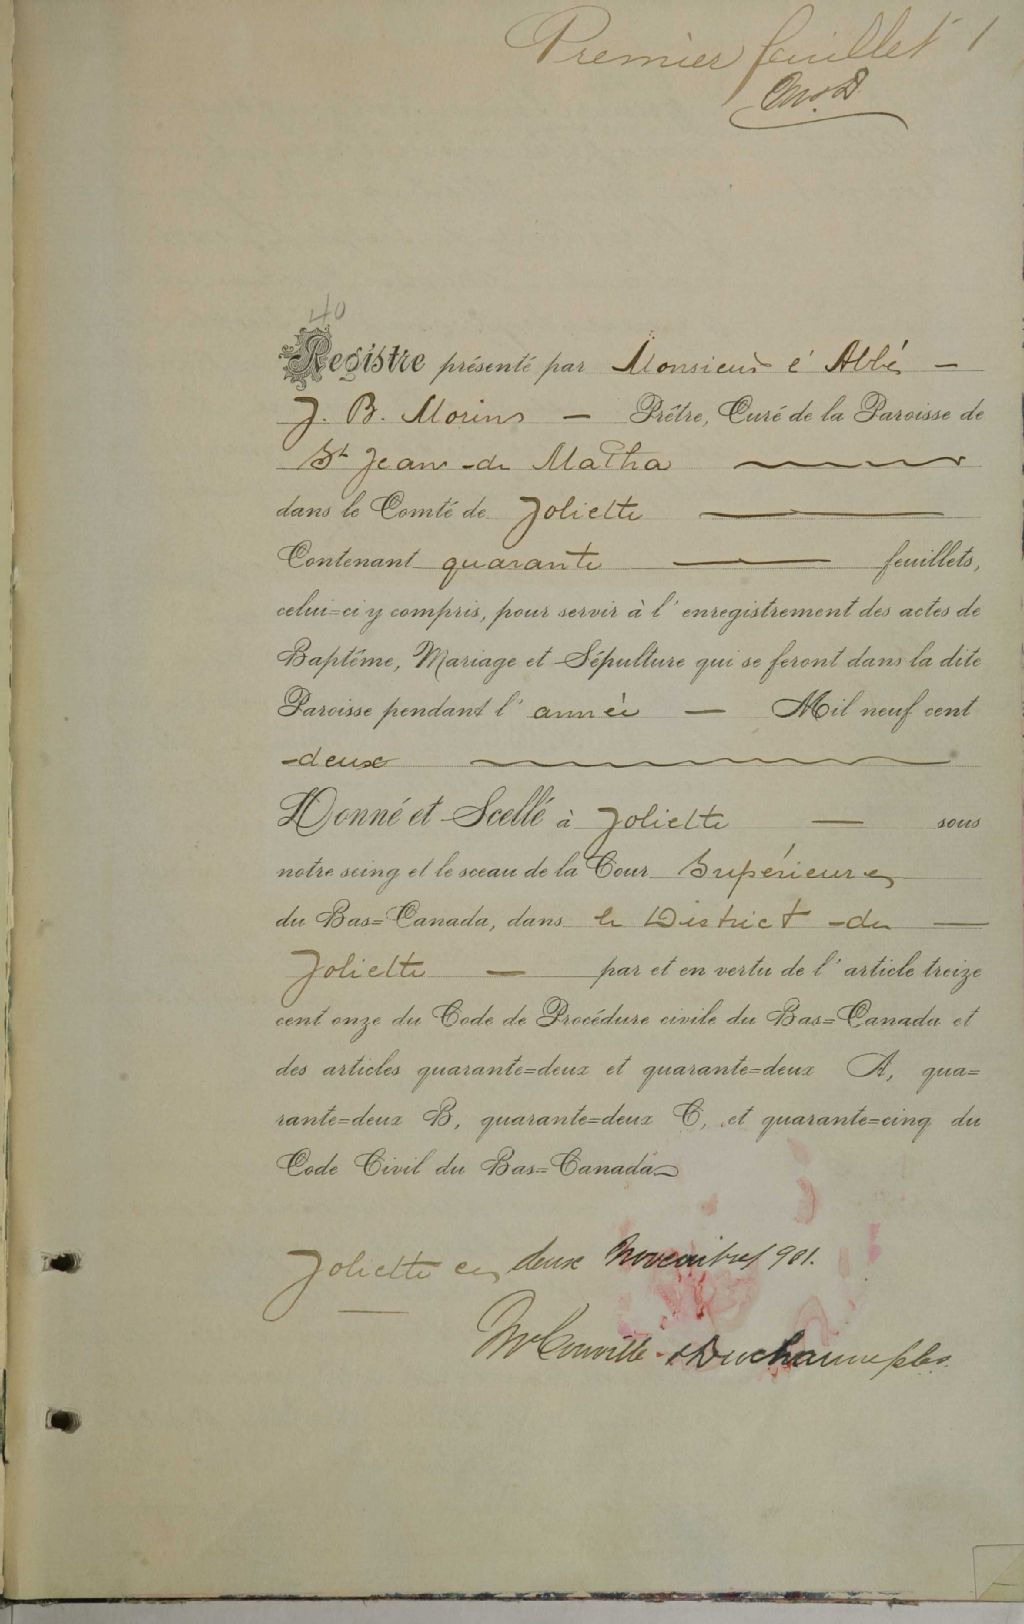 Premier feuillet 1
40
Registre présenté par Monsieur l'Abbé —
J. B. Morin — Prêtre, Curé de la Paroisse de
St Jean de Matha
dans le Comté de Joliette
Contenant quarante feuillets,
celui=ci y compris, pour servir à l'enregistrement des actes de
Baptême, Mariage et Sépulture qui se feront dans la dite
Paroisse pendant l'année — Mil neuf cent
deux
Donné et Scellé à Joliette — sous
notre seing et le sceau de la Cour Supérieure
du Bas=Canada, dans le District de —
Joliette — par et en vertu de l'article treize
cent onze du Code de Procédure civile du Bas=Canada et
des articles quarante=deux et quarante=deux A, qua=
rante=deux B, quarante=deux C, et quarante=cinq du
Code Civil du Bas=Canada
Joliette ce deux Novembre 1901.
Deschamps